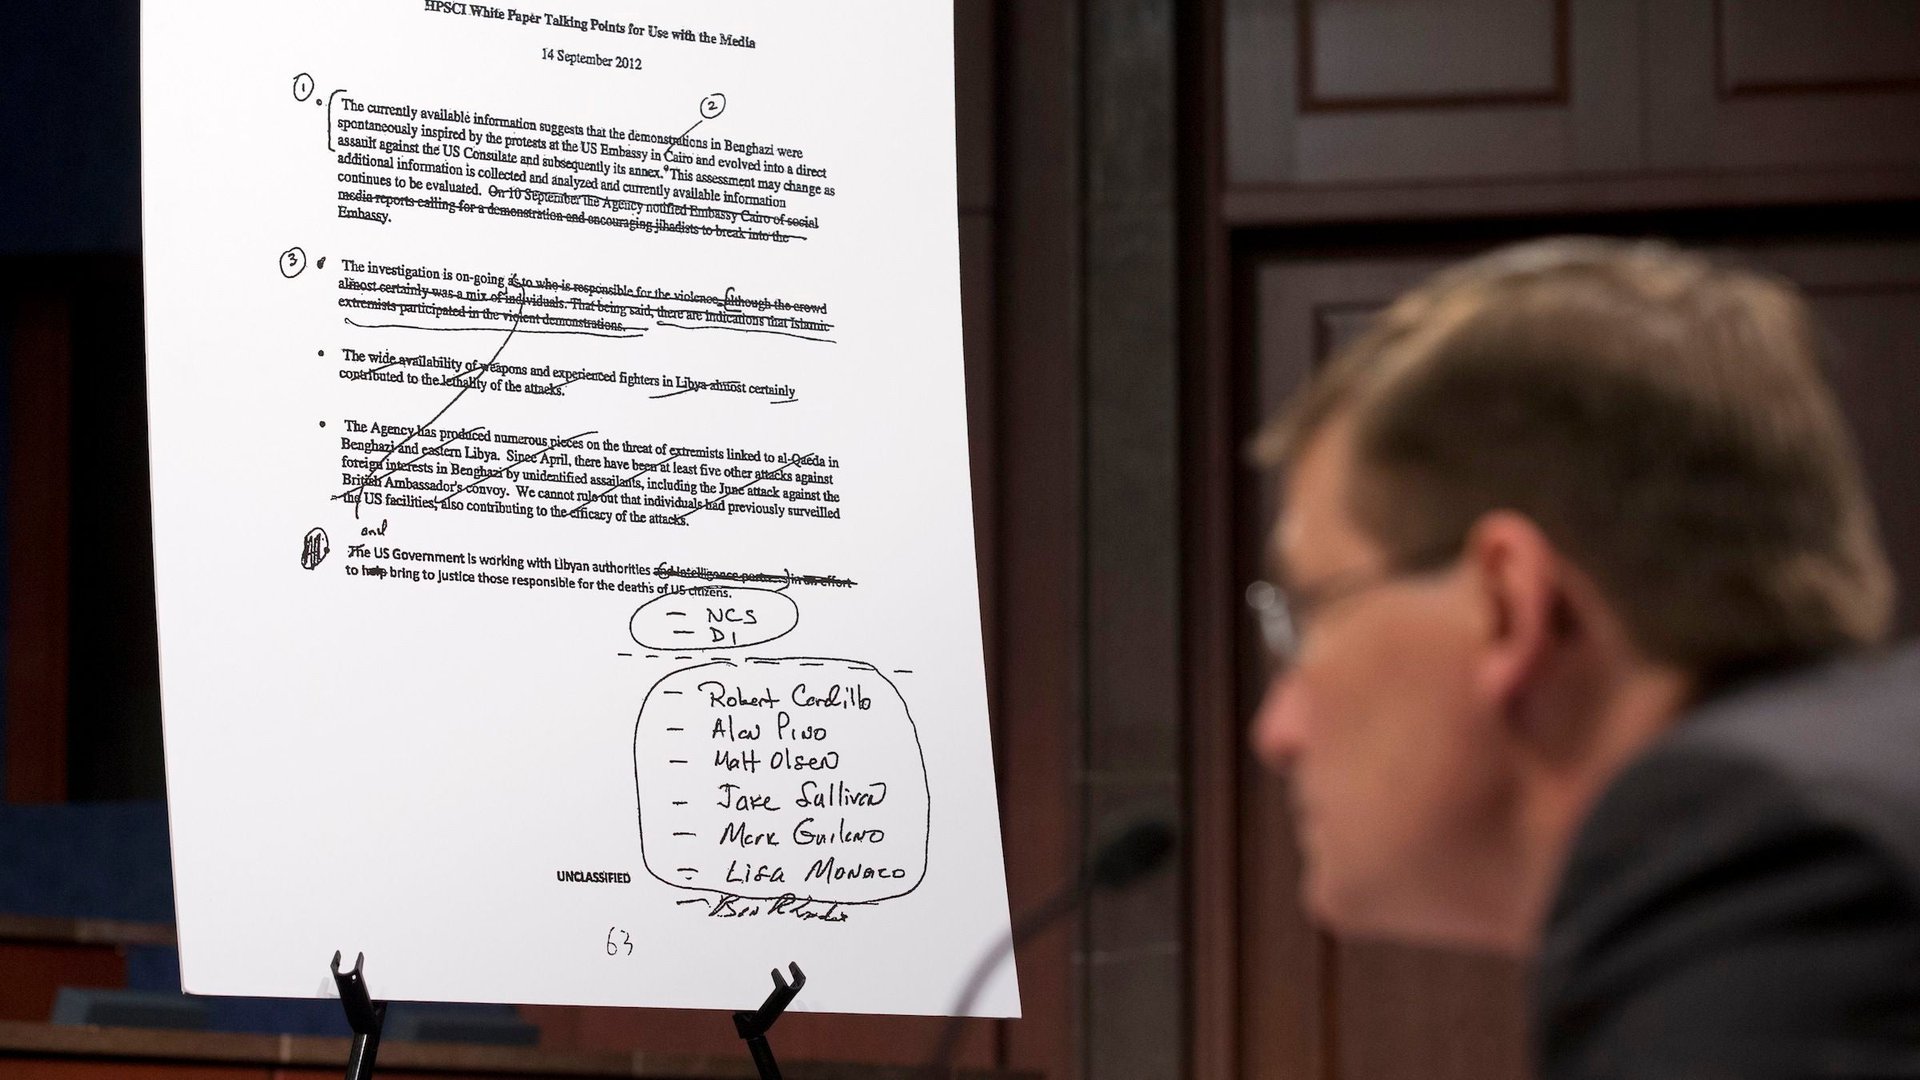 HPSCI White Paper Talking Points for Use with the Media
14 September 2012
1
2
• The currently available information suggests that the demonstrations in Benghazi were
spontaneously inspired by the protests at the US Embassy in Cairo and evolved into a direct
assault against the US Consulate and subsequently its annex. This assessment may change as
additional information is collected and analyzed and currently available information
continues to be evaluated. On 10 September the Agency notified Embassy Cairo of social
media reports calling for a demonstration and encouraging jihadists to break into the
Embassy.
3
• The investigation is on-going as to who is responsible for the violence, although the crowd
almost certainly was a mix of individuals. That being said, there are indications that Islamic
extremists participated in the violent demonstrations.
• The wide availability of weapons and experienced fighters in Libya almost certainly
contributed to the lethality of the attacks.
• The Agency has produced numerous pieces on the threat of extremists linked to al-Qaeda in
Benghazi and eastern Libya. Since April, there have been at least five other attacks against
foreign interests in Benghazi by unidentified assailants, including the June attack against the
British Ambassador's convoy. We cannot rule out that individuals had previously surveilled
the US facilities, also contributing to the efficacy of the attacks.
and
The US Government is working with Libyan authorities and intelligence partners in an effort
to help bring to justice those responsible for the deaths of US citizens.
— NCS
— DI
— Robert Cardillo
— Alan Pino
— Matt Olsen
— Jake Sullivan
— Mark Guiliano
— Lisa Monaco
— Ben Rhodes
UNCLASSIFIED
63